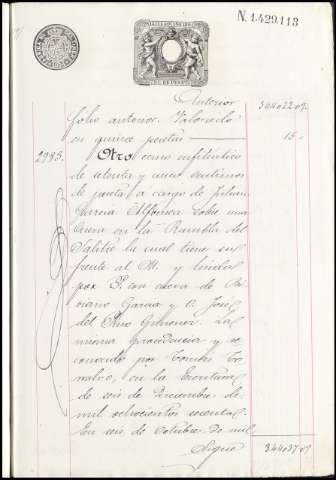 N.1.429.113
Anterior 344022 09
folio anterior. Valorado
en quince pesetas 15 =
2985. Otro censo enfitéutico
de ochenta y cinco centimos
de peseta, a cargo de Julian
Garcia Alfonsea sobre una
en la Rambla del
Salitre la cual tiene su
frente al M. y linda
por P. con de
Garcia y D. José
del Pino Gimenez. La
misma procedencia y re
conocido por Tomás Gon
salvez, en la Escritura
de seis de Diciembre de
mil ochocientos sesenta.
En seis de Octubre de mil
Sigue 344037 09